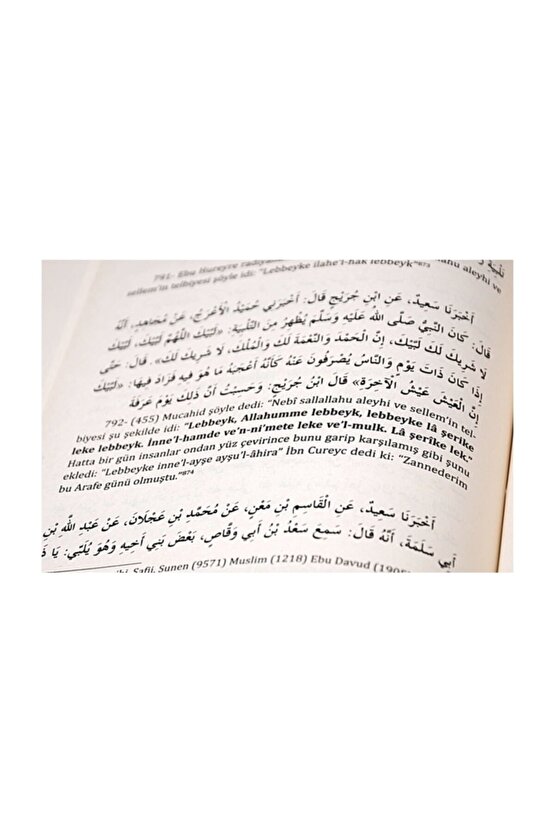 تلبية
791- Ebu Hureyre radiyallahu aleyhi ve
sellem'in telbiyesi şöyle idi: "Lebbeyke ilahe'l-hak lebbeyk"⁸⁷³
أَخْبَرَنَا سَعِيدٌ، عَنِ ابْنِ جُرَيْجٍ قَالَ: أَخْبَرَنِي حُمَيْدٌ الْأَعْرَجُ، عَنْ مُجَاهِدٍ، أَنَّهُ
قَالَ: كَانَ النَّبِيُّ صَلَّى اللهُ عَلَيْهِ وَسَلَّمَ يُظْهِرُ مِنَ التَّلْبِيَةِ: «لَبَّيْكَ اللَّهُمَّ لَبَّيْكَ، لَبَّيْكَ
لَا شَرِيكَ لَكَ لَبَّيْكَ، إِنَّ الْحَمْدَ وَالنِّعْمَةَ لَكَ وَالْمُلْكَ، لَا شَرِيكَ لَكَ». قَالَ: حَتَّى
إِذَا كَانَ ذَاتَ يَوْمٍ وَالنَّاسُ يُصْرَفُونَ عَنْهُ كَأَنَّهُ أَعْجَبَهُ مَا هُوَ فِيهِ فَزَادَ فِيهَا: «لَبَّيْكَ
إِنَّ الْعَيْشَ عَيْشُ الْآخِرَةِ» قَالَ ابْنُ جُرَيْجٍ: وَحَسِبْتُ أَنَّ ذَلِكَ يَوْمَ عَرَفَةَ
792- (455) Mucahid şöyle dedi: "Nebî sallallahu aleyhi ve sellem'in tel-
biyesi şu şekilde idi: "Lebbeyk, Allahumme lebbeyk, lebbeyke lâ şerike
leke lebbeyk. İnne'l-hamde ve'n-ni'mete leke ve'l-mulk. Lâ şerîke lek."
Hatta bir gün insanlar ondan yüz çevirince bunu garip karşılamış gibi şunu
ekledi: "Lebbeyke inne'l-ayşe ayşu'l-âhira" İbn Cureyc dedi ki: "Zannederim
bu Arafe günü olmuştu."⁸⁷⁴
أَخْبَرَنَا سَعِيدٌ، عَنِ الْقَاسِمِ بْنِ مَعْنٍ، عَنْ مُحَمَّدِ بْنِ عَجْلَانَ، عَنْ عَبْدِ اللَّهِ بْنِ
أَبِي سَلَمَةَ، أَنَّهُ قَالَ: سَمِعَ سَعْدُ بْنُ أَبِي وَقَّاصٍ، بَعْضَ بَنِي أَخِيهِ وَهُوَ يُلَبِّي: يَا
Safii, Sunen (9571) Muslim (1218) Ebu Davud